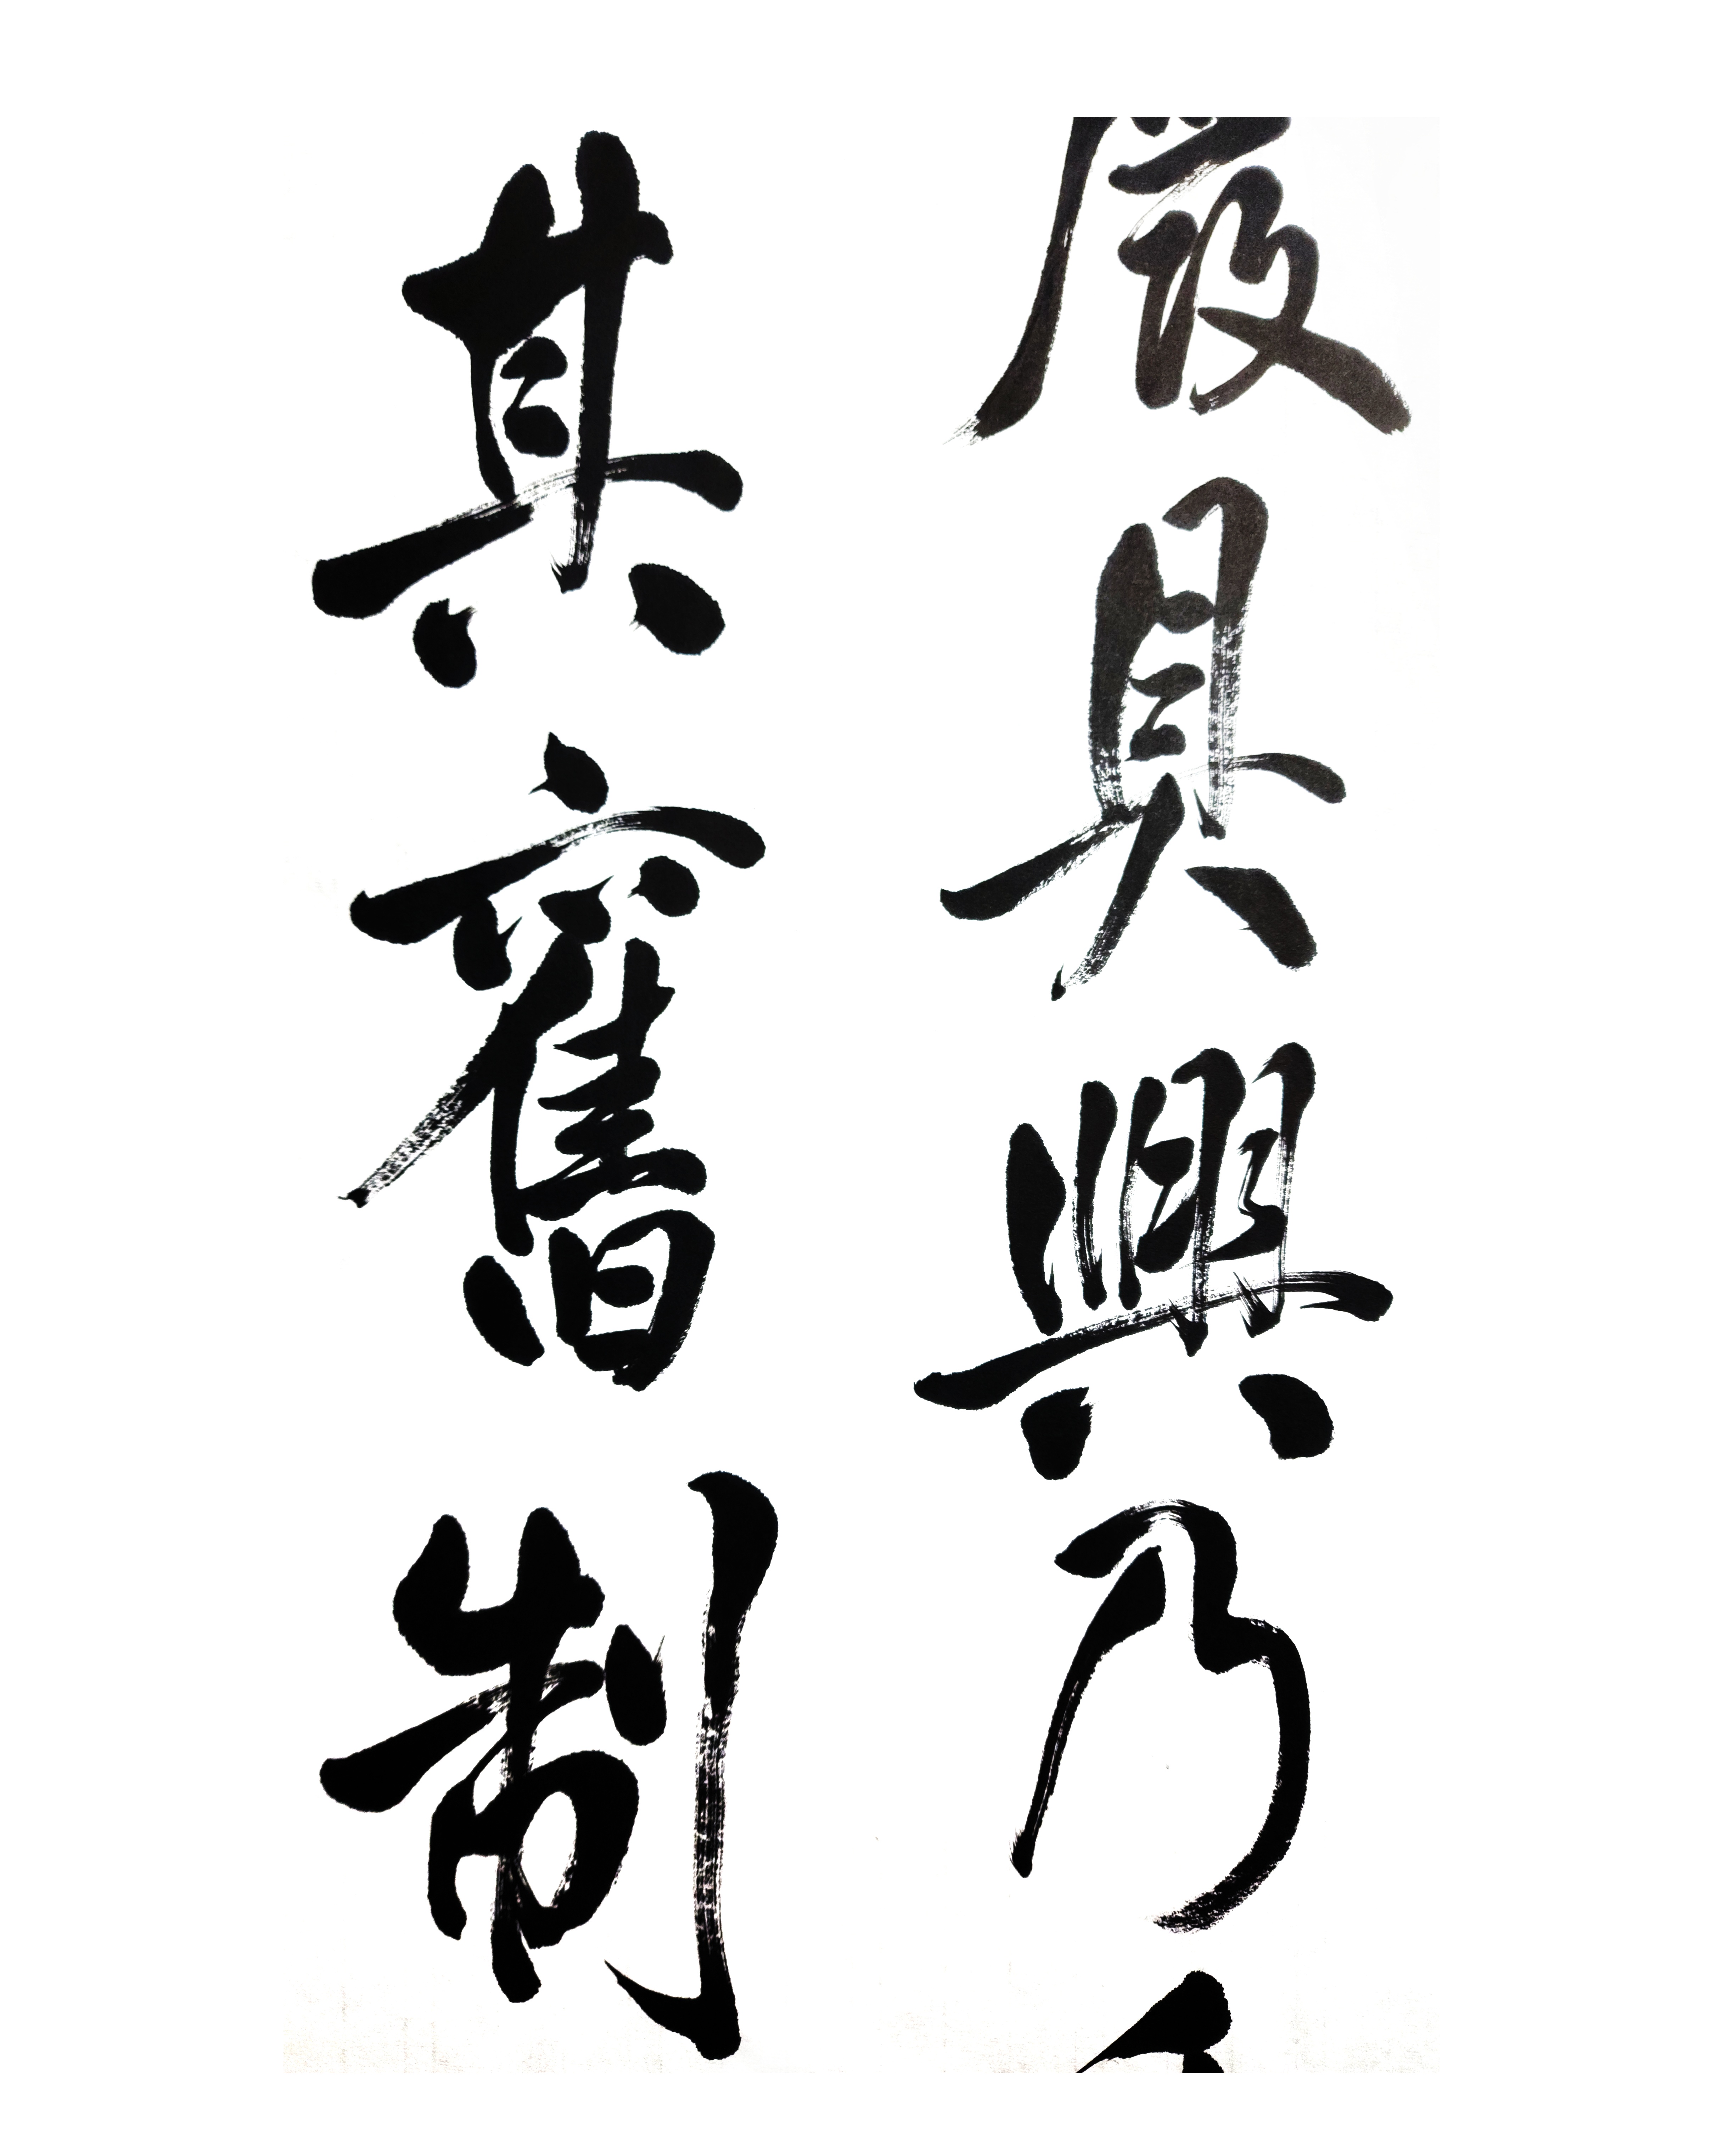 廢具興乃
其舊制